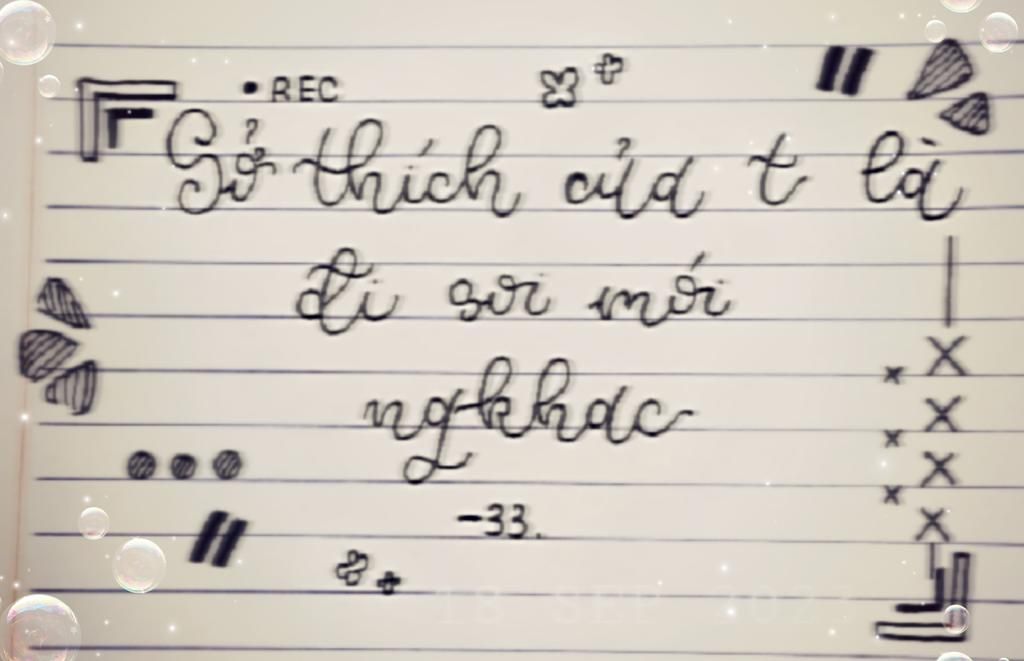 • REC
Sở thích của t là
đi soi mói
ng khác
-33.
18 SEP 202